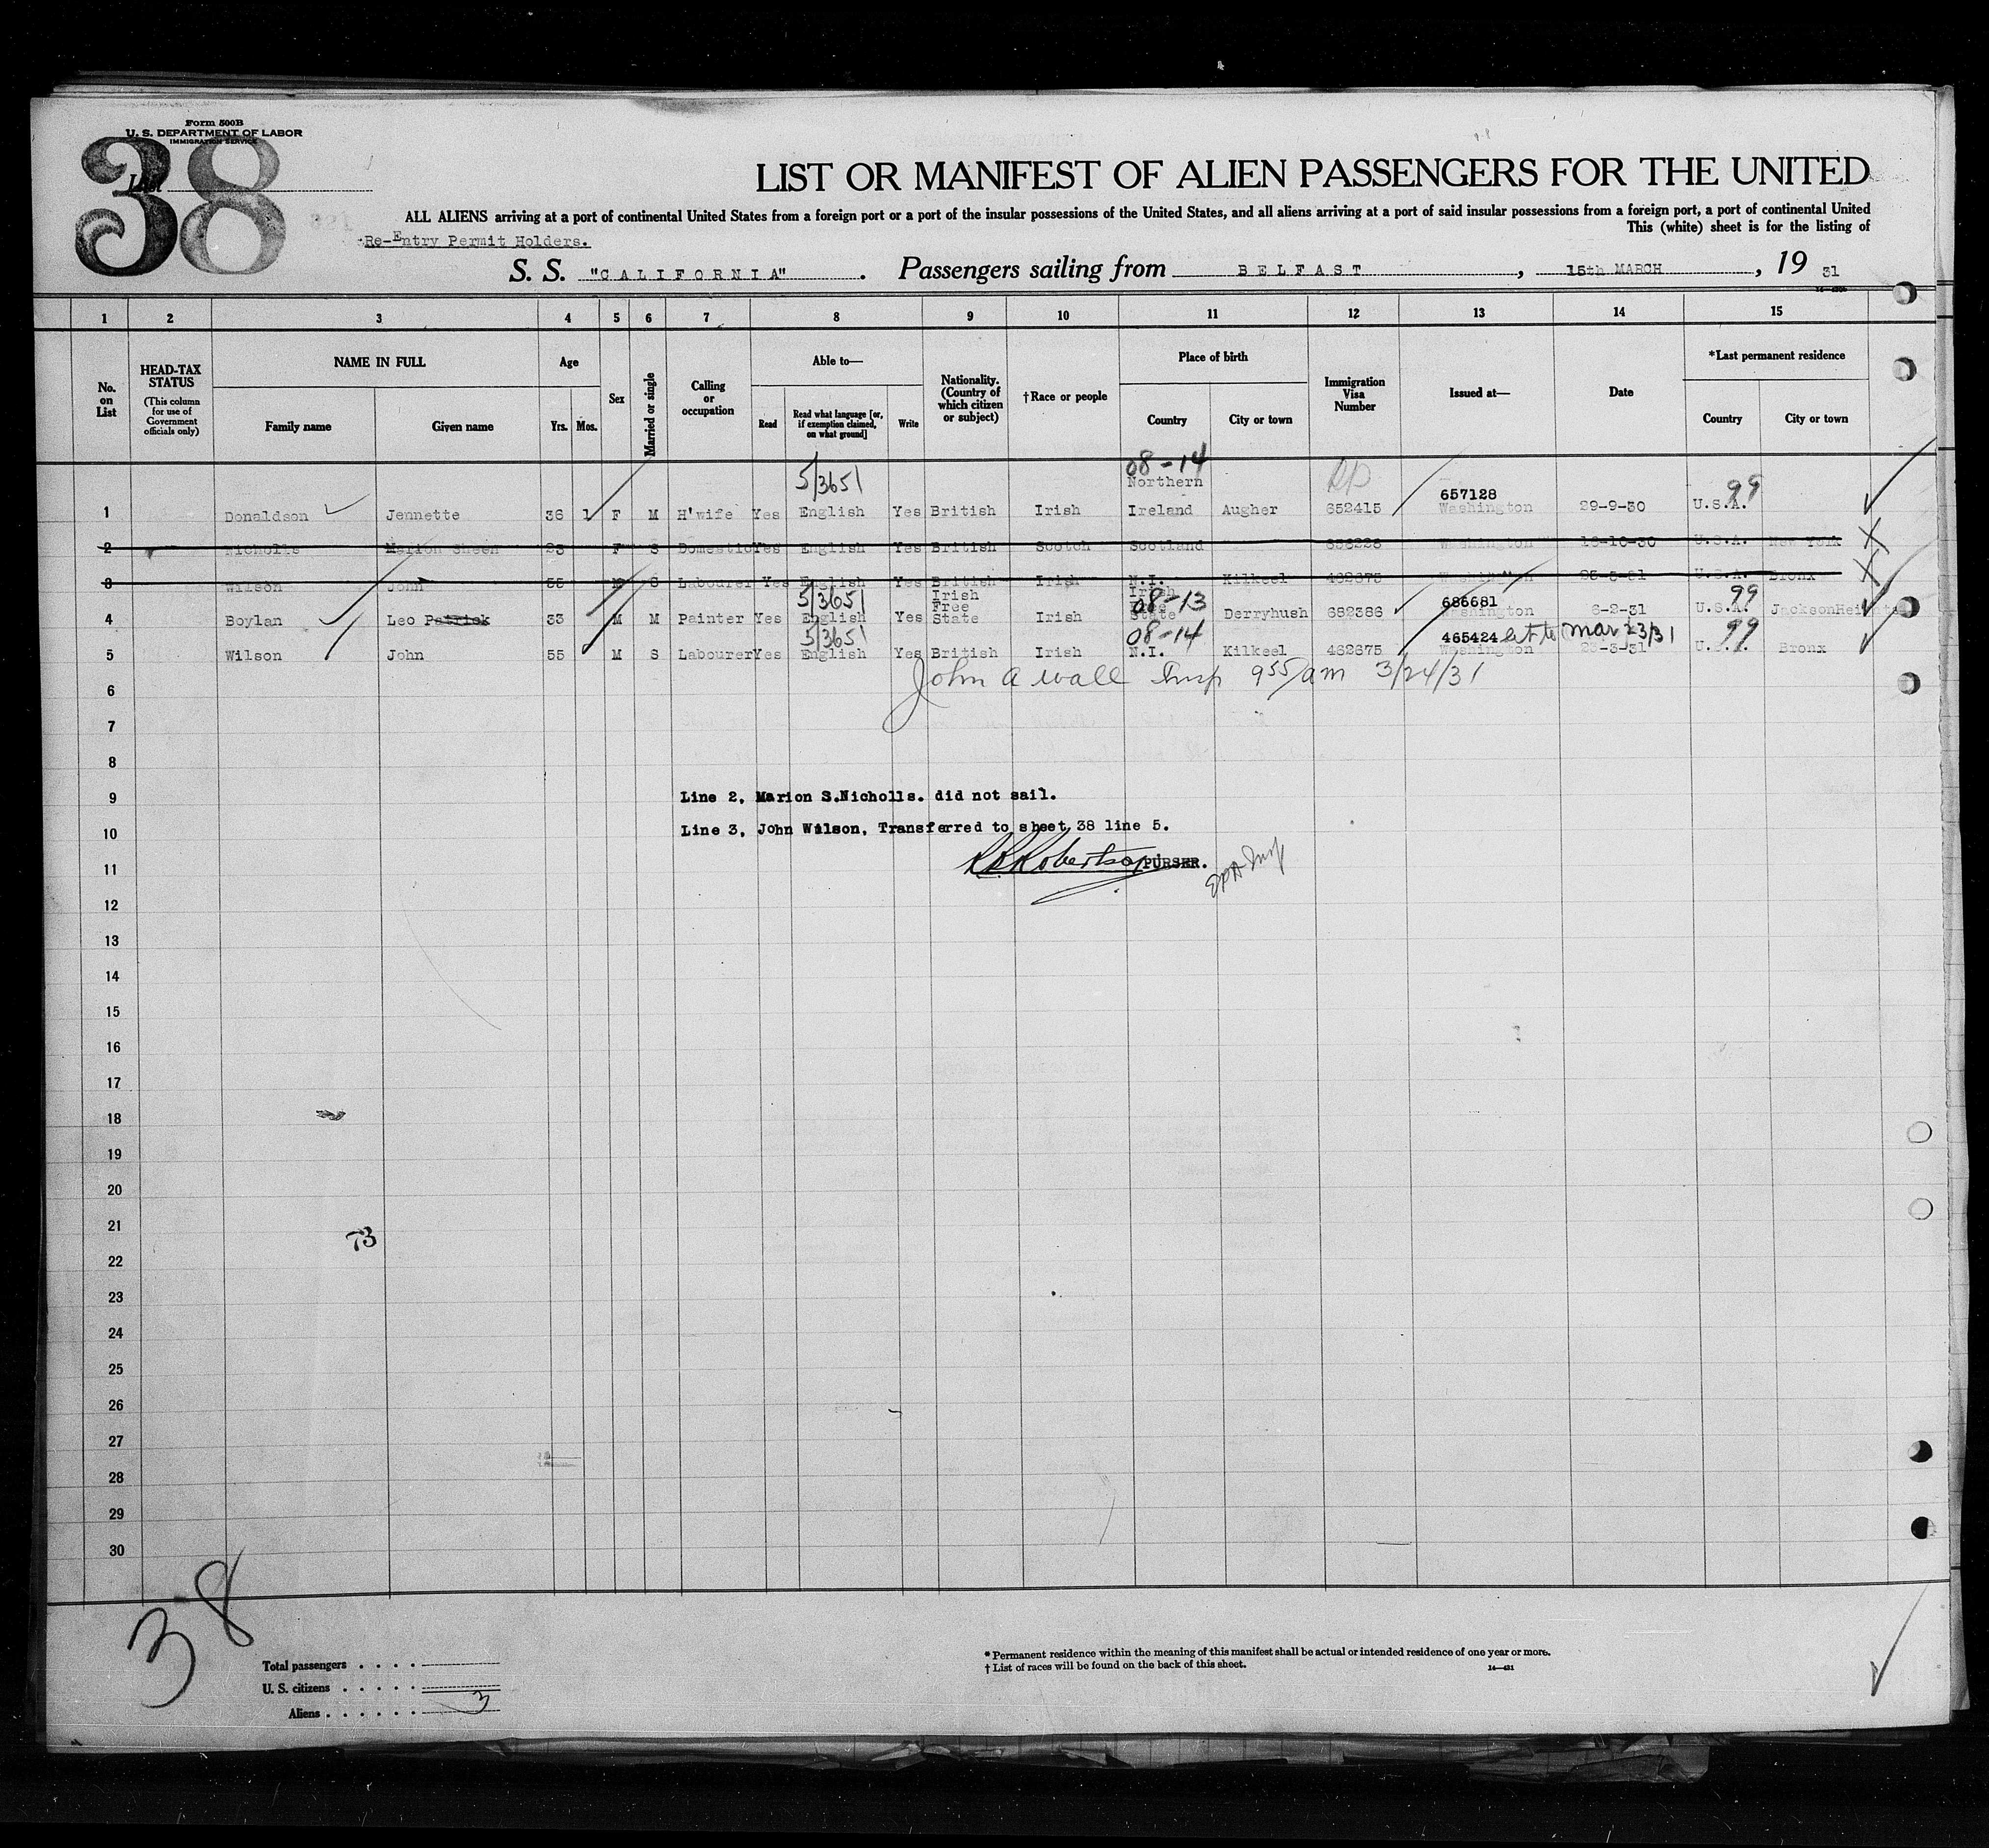 Form 500B
U. S. DEPARTMENT OF LABOR
IMMIGRATION SERVICE
38
List
LIST OR MANIFEST OF ALIEN PASSENGERS FOR THE UNITED
ALL ALIENS arriving at a port of continental United States from a foreign port or a port of the insular possessions of the United States, and all aliens arriving at a port of said insular possessions from a foreign port, a port of continental United
This (white) sheet is for the listing of
Re-Entry Permit Holders.
S. S. "CALIFORNIA". Passengers sailing from BELFAST, 15th MARCH, 19 31
1 2 3 4 5 6 7 8 9 10 11 12 13 14 15
No. on List
HEAD-TAX STATUS
(This column for use of Government officials only)
NAME IN FULL
Family name Given name
Age
Yrs. Mos.
Sex
Married or single
Calling or occupation
Able to—
Read Read what language [or, if exemption claimed, on what ground] Write
Nationality. (Country of which citizen or subject)
†Race or people
Place of birth
Country City or town
Immigration Visa Number
Issued at—
Date
*Last permanent residence
Country City or town
5/3651 08-14
Northern 657128 99
1 Donaldson Jennette 36 1 F M H'wife Yes English Yes British Irish Ireland Augher 652415 Washington 29-9-30 U.S.A.
2 Nicholls Marion Sheen 23 F S Domestic Yes English Yes British Scotch Scotland Washington 16-10-30 U.S.A. New York
3 Wilson John 55 M S Labourer Yes English Yes British Irish N.I. Kilkeel 462675 Washington U.S.A. Bronx
5/3651 Irish Free Irish Free 08-13 686681 99
4 Boylan Leo Patrick 33 M M Painter Yes English Yes State Irish State Derryhush 682386 Washington 6-2-31 U.S.A. Jackson Heights
5/3651 08-14 465424 Mar 23/31 99
5 Wilson John 55 M S Labourer Yes English Yes British Irish N.I. Kilkeel 462675 Washington U.S.A. Bronx
John A Wall Insp 9 55/am 3/24/31
6
7
8
9 Line 2, Marion S.Nicholls. did not sail.
10 Line 3, John Wilson, Transferred to sheet 38 line 5.
11 Robertson PURSER.
12
13
14
15
16
17
18
19
20
21
73
22
23
24
25
26
27
28
29
30
38
Total passengers
U. S. citizens
Aliens 3
* Permanent residence within the meaning of this manifest shall be actual or intended residence of one year or more.
† List of races will be found on the back of this sheet.
14—421